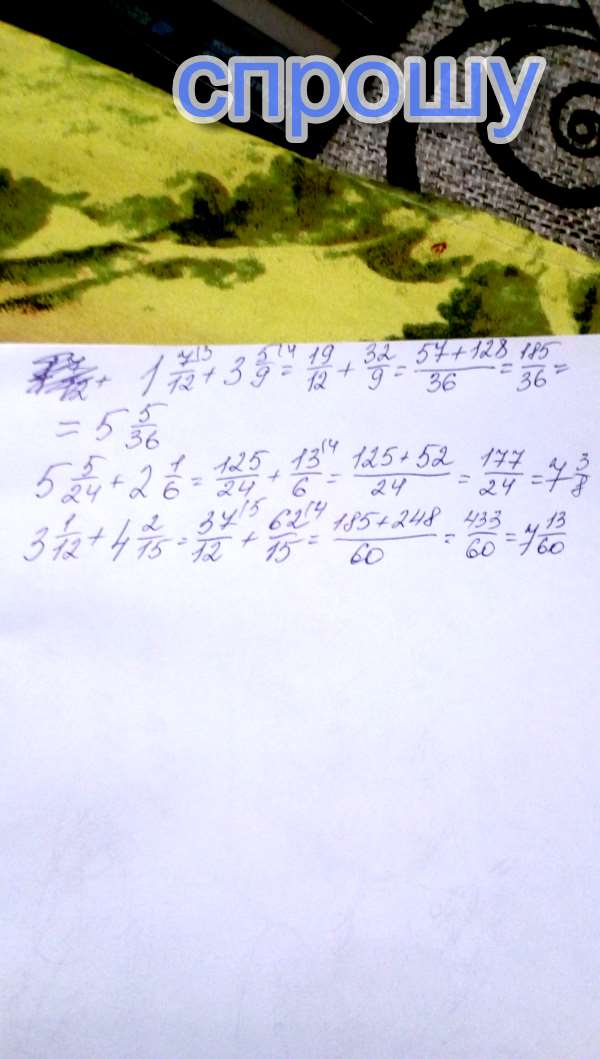 спрошу
1 7/12 + 3 5/9 = 19/12 + 32/9 = 57+128/36 = 185/36 =
= 5 5/36
5 5/24 + 2 1/6 = 125/24 + 13/6 = 125+52/24 = 177/24 = 7 3/8
3 1/12 + 4 2/15 = 37/12 + 62/15 = 185+248/60 = 433/60 = 7 13/60